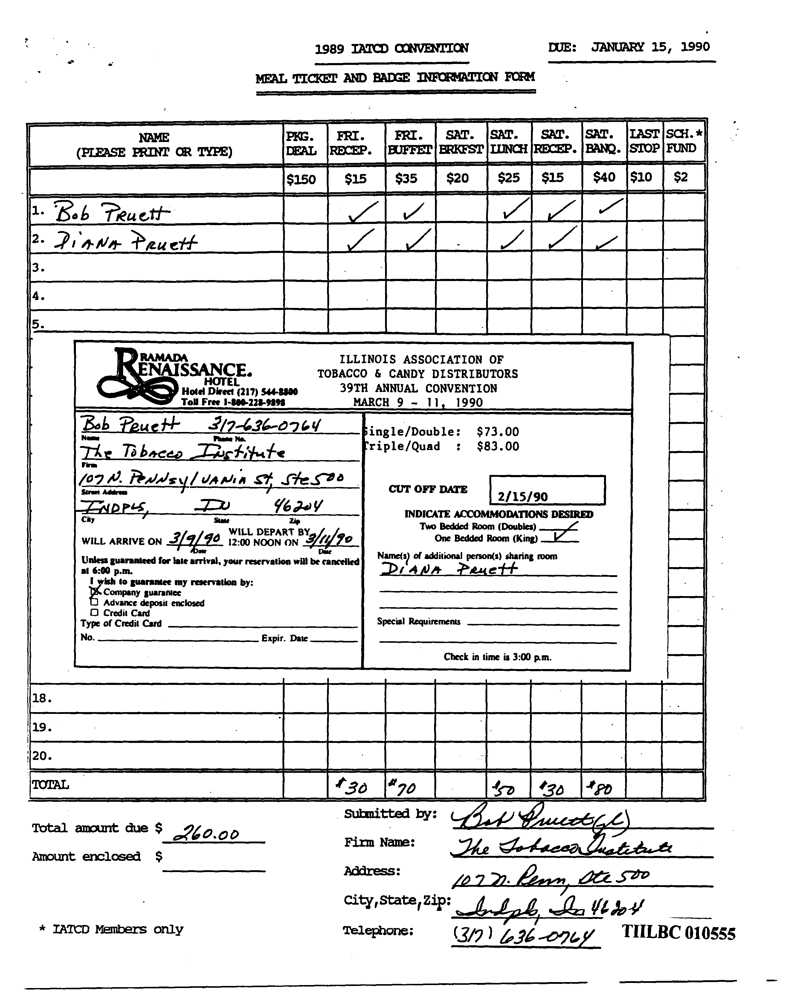 1989 IATCD CONVENTION DUE: JANUARY 15, 1990
MEAL TICKET AND BADGE INFORMATION FORM
NAME (PLEASE PRINT OR TYPE) PKG. DEAL FRI. RECEP. FRI. BUFFET SAT. BRKFST SAT. LUNCH SAT. RECEP. SAT. BANQ. LAST STOP SCH.* FUND
$150 $15 $35 $20 $25 $15 $40 $10 $2
1. Bob Pruett ✓ ✓ ✓ ✓ ✓
2. Diana Pruett ✓ ✓ ✓ ✓ ✓
3.
4.
5.
RAMADA
RENAISSANCE.
HOTEL
Hotel Direct (217) 544-8800
Toll Free 1-800-228-9898
ILLINOIS ASSOCIATION OF
TOBACCO & CANDY DISTRIBUTORS
39TH ANNUAL CONVENTION
MARCH 9 - 11, 1990
Bob Pruett 317-636-0764
Name Phone No.
The Tobacco Institute
Firm
107 N. Pennsylvania St, Ste 500
Street Address
INDPLS, IN 46204
City State Zip
WILL ARRIVE ON 3/9/90 WILL DEPART BY 12:00 NOON ON 3/11/90
Date Date
Unless guaranteed for late arrival, your reservation will be cancelled
at 6:00 p.m.
I wish to guarantee my reservation by:
☒ Company guarantee
☐ Advance deposit enclosed
☐ Credit Card
Type of Credit Card
No. Expir. Date
ingle/Double: $73.00
riple/Quad : $83.00
CUT OFF DATE 2/15/90
INDICATE ACCOMMODATIONS DESIRED
Two Bedded Room (Doubles)
One Bedded Room (King) ✓
Name(s) of additional person(s) sharing room
Diana Pruett
Special Requirements
Check in time is 3:00 p.m.
18.
19.
20.
TOTAL $30 $70 $50 $30 $80
Total amount due $ 260.00
Amount enclosed $
Submitted by: Bob Pruett (gl)
Firm Name: The Tobacco Institute
Address: 107 N. Penn, Ste 500
City,State,Zip: Indpls, In 46204
Telephone: (317) 636-0764
* IATCD Members only
TIILBC 010555